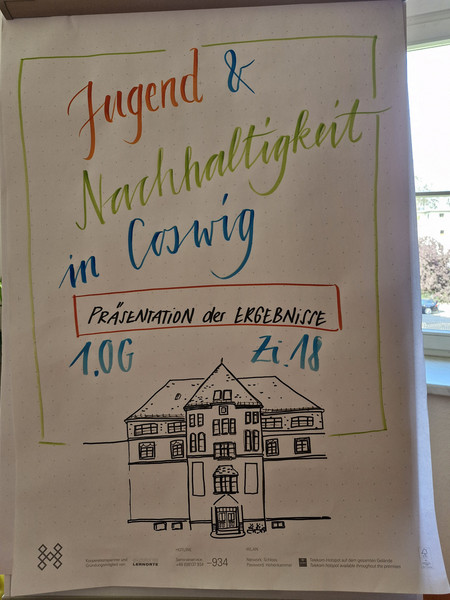 Jugend &
Nachhaltigkeit
in Coswig
PRÄSENTATION der ERGEBNISSE
1.OG Zi.18
LERNORTE
-934